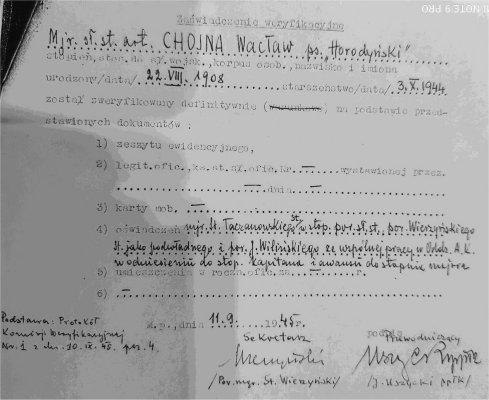 NOTE 9 PRO
Zaświadczenie weryfikacyjne
Mjr. sł. st. art. CHOJNA Wacław ps. „Horodyński"
stopień, stos. do sł. wojsk., korpus osob., nazwisko i imiona
urodzony/data/ 22.VIII.1908 starszeństwo/data/ 3.X.1944
został zweryfikowany definitywnie (warunkowo) na podstawie przed-
stawionych dokumentów :
1) zeszytu ewidencyjnego,
2) legit.ofic., ks.st.sł.ofic.Nr — wystawionej przez
— dnia —
3) karty mob. —
4) oświadczeń mjr. St. Taczanowskiego w stop. por. sł. st., por. Wierzyńskiego
St. jako podwładnego i por. J. Wilińskiego ze wspólnej pracy w Oddz. A.K.
w odniesieniu do stop. kapitana i awansu do stopnia majora
5) umieszczenia w roczn.ofic.za — r.
6) —
M.p., dnia 11.9. 1945r.
Podstawa: Protokół
Komisji Weryfikacyjnej
Nr. 1 z dn. 10.IX.45 poz. 4
Sekretarz
/Por. mgr. St. Wierzyński/
podpis
Przewodniczący
/J. Uszycki ppłk/